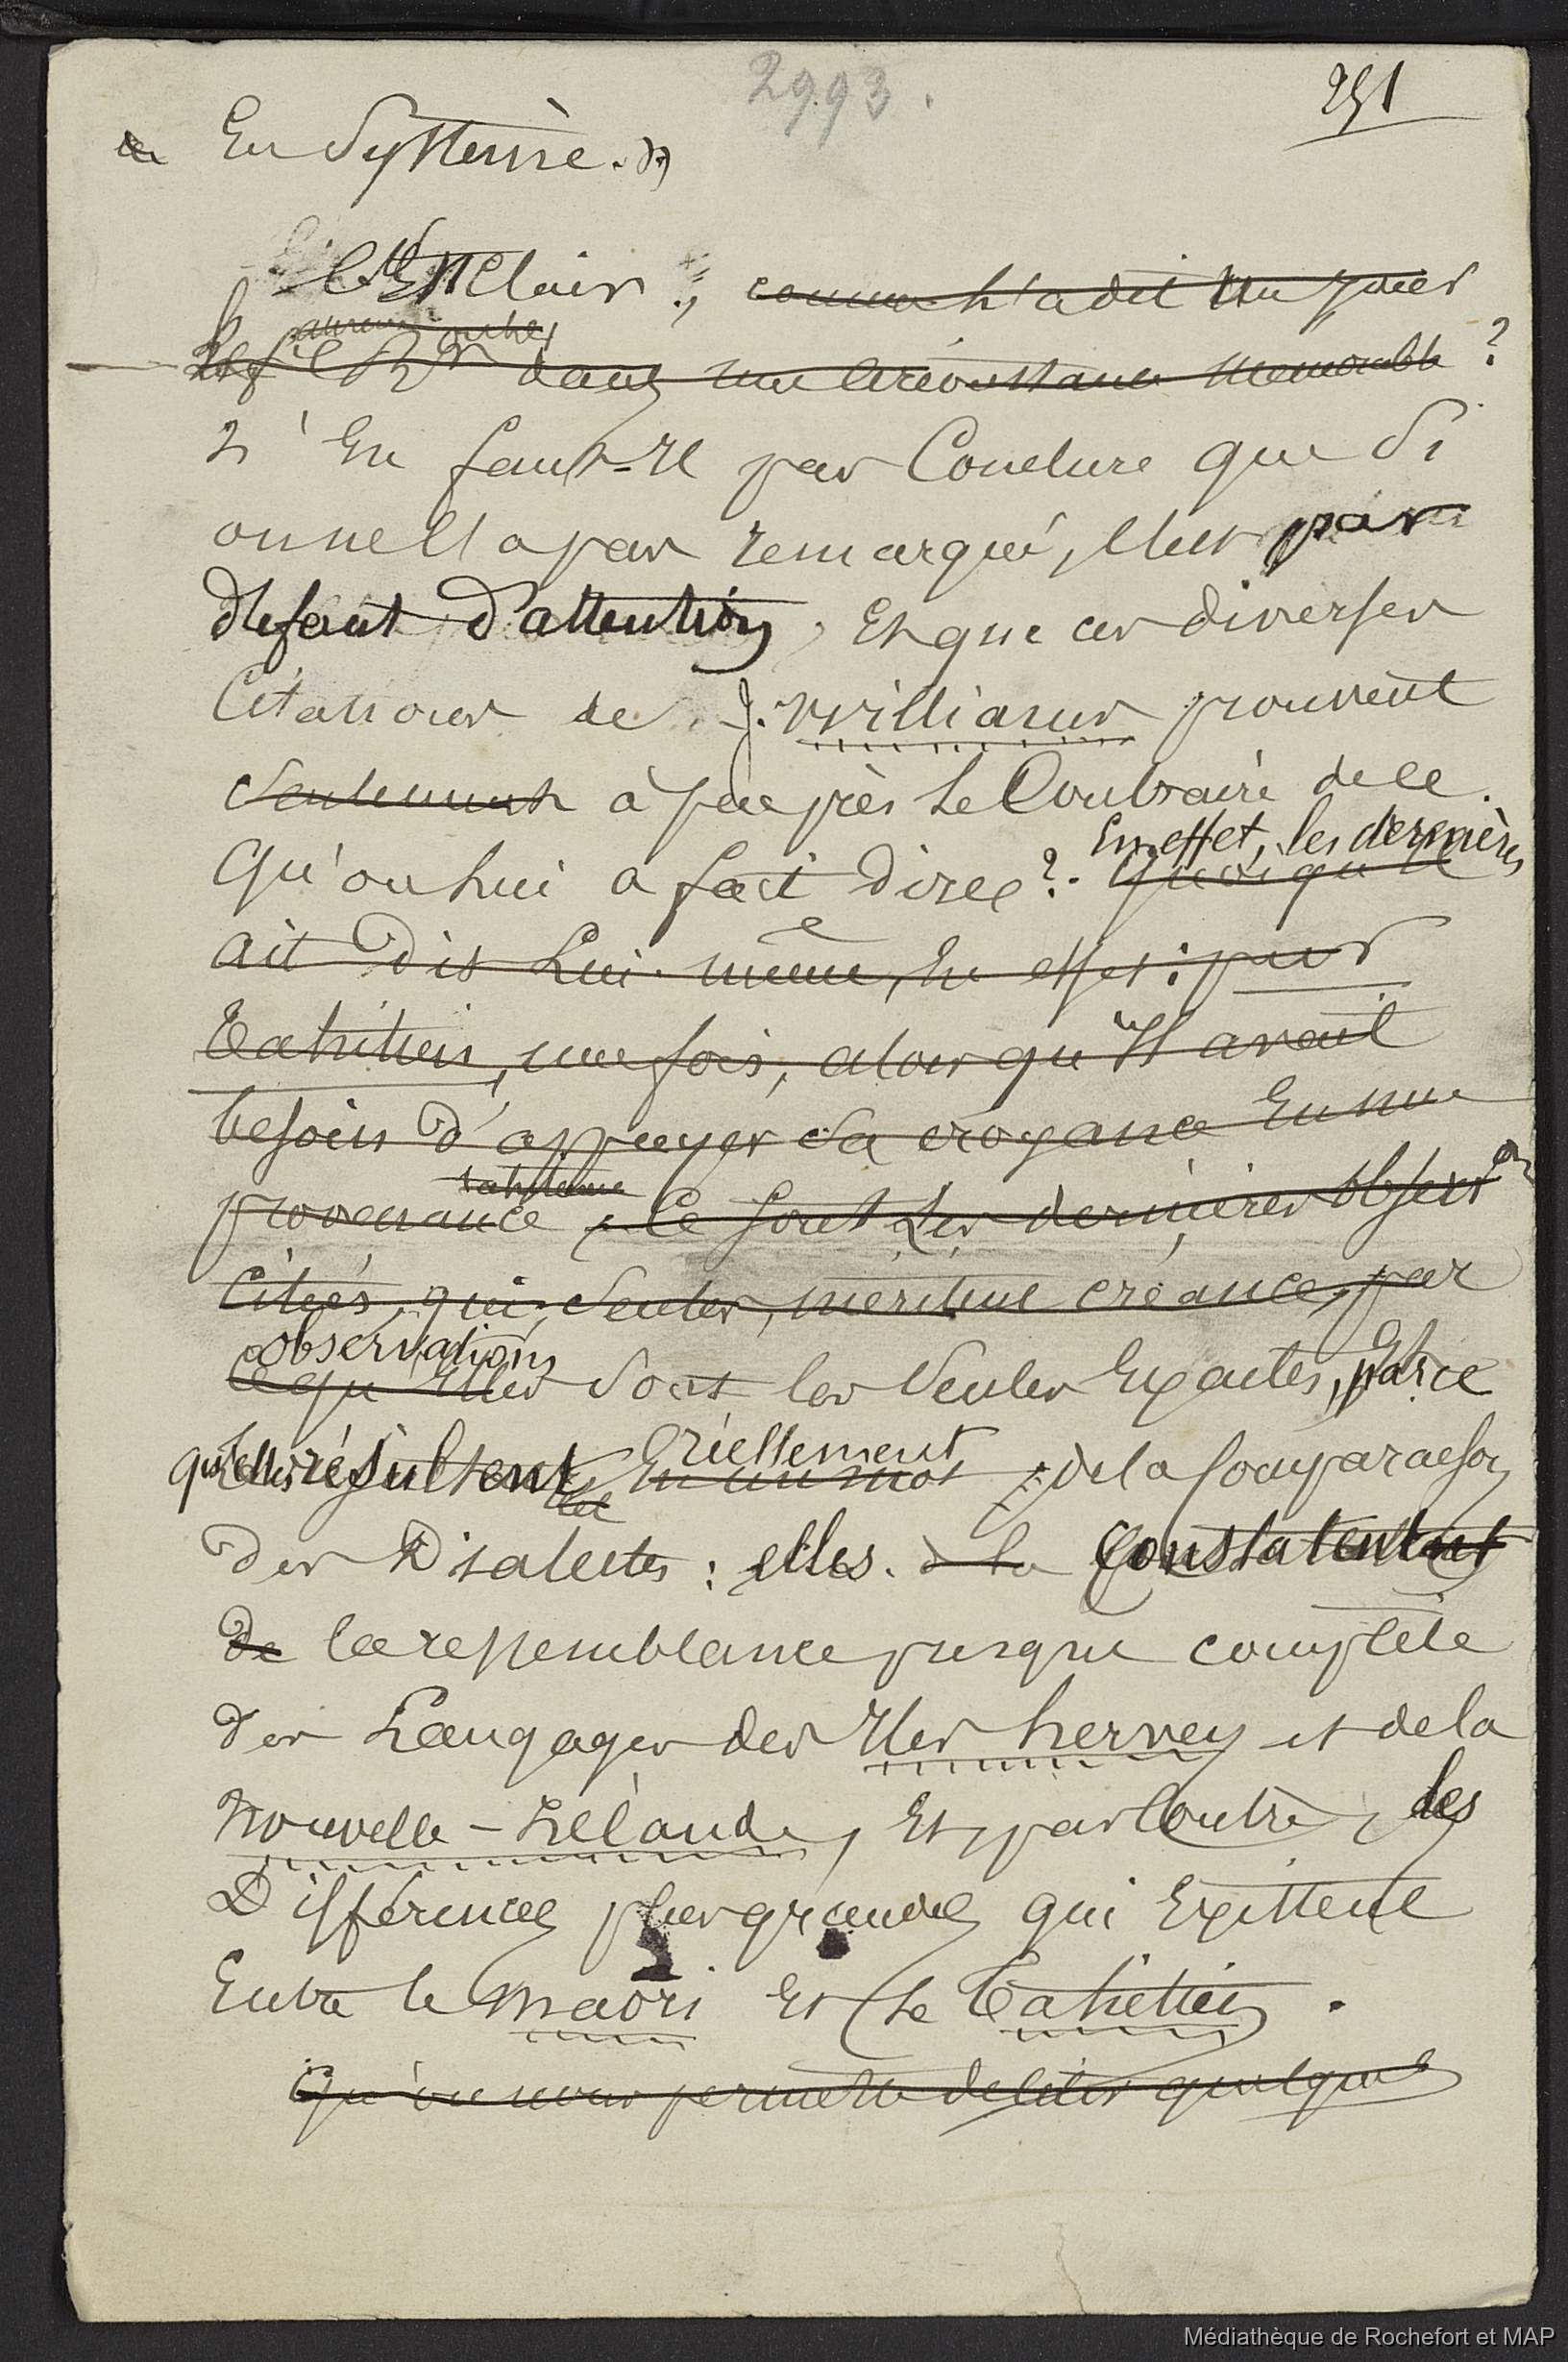 2993.
251
En Système.
Est-ce clair ?, comme l'a dit un jour
dans une circonstance mémorable ?
N'en faut-il pas Conclure que Si
on ne l'a pas remarqué, c'est par
défaut d'attention, Et que ces diverses
Citations de J. Williams prouvent
Seulement à peu près le Contraire de ce
En effet, les dernières
Qu'on lui a fait dire ?. Quoiqu'il
ait dit Lui-même, En effet : pur
Tahitien, une fois, alors qu'il avait
besoin d'appuyer sa croyance En une
tahitienne
provenance, Ce sont Les dernières observ.on
Citées, qui, Seules, méritent créance, par
observations
ce qu'Elles Sont les Seules Exactes, parce
réellement
qu'elles résultent En un mot de la Comparaison
Des Dialectes : elles. à la Constatent
de la ressemblance presque complète
Des Langages des Iles hervey et de la
Nouvelle-Zélande, Et, par Contre, les
Différences plus grandes qui Existent
Entre le maori Et le Tahitien.
Qu'on nous permette de citer quelques
Médiathèque de Rochefort et MAP